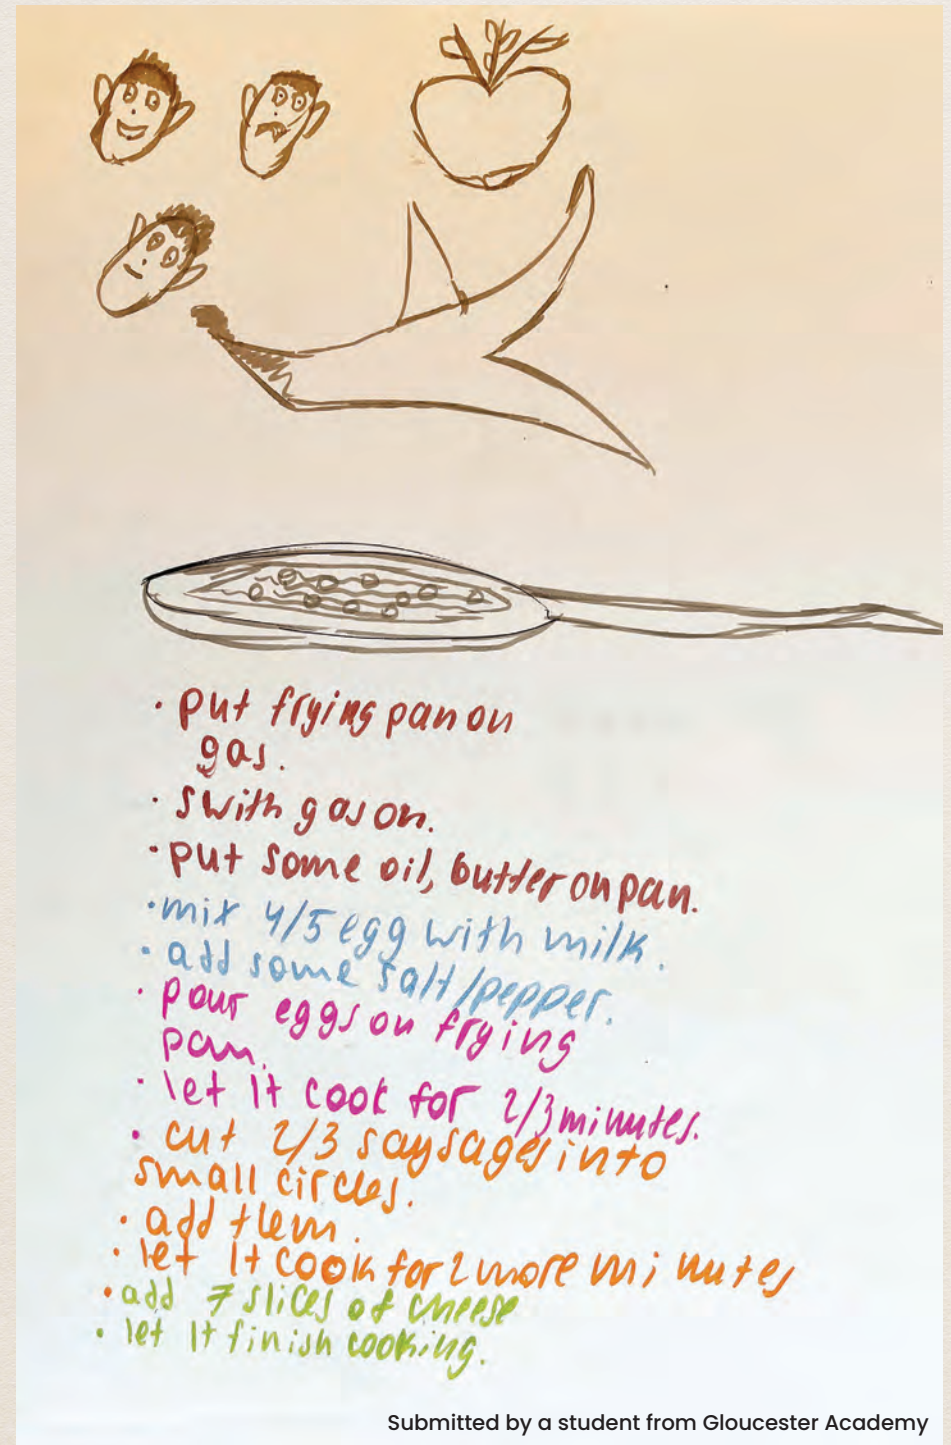 · put frying pan on
gas.
· swith gas on.
· put some oil, butter on pan.
· mix 4/5 egg with milk.
· add some salt/pepper.
· pour eggs on frying
pan.
· let It cook for 2/3 minutes.
· cut 2/3 saysages into
small circles.
· add them.
· let It cook for 2 more minutes
· add 7 slices of cheese
· let It finish cooking.
Submitted by a student from Gloucester Academy